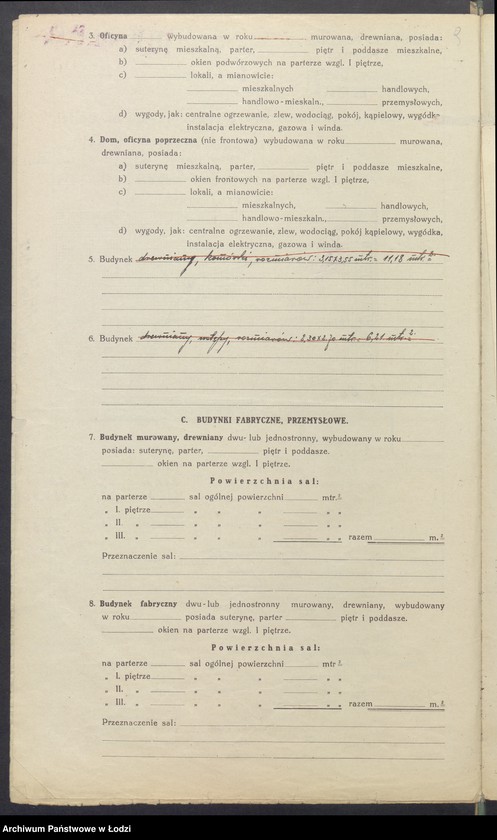 3. Oficyna Wybudowana w roku murowana, drewniana, posiada:
a) suterynę mieszkalną, parter, piętr i poddasze mieszkalne,
b) okien podwórzowych na parterze wzgl. I piętrze,
c) lokali, a mianowicie:
mieszkalnych handlowych,
handlowo-mieskaln., przemysłowych,
d) wygody, jak: centralne ogrzewanie, zlew, wodociąg, pokój, kąpielowy, wygódka
instalacja elektryczna, gazowa i winda.
4. Dom, oficyna poprzeczna (nie frontowa) wybudowana w roku murowana,
drewniana, posiada:
a) suterynę mieszkalną, parter, piętr i poddasze mieszkalne,
b) okien frontowych na parterze wzgl. I piętrze,
c) lokali, a mianowicie:
mieszkalnych, handlowych,
handlowo-mieszkaln., przemysłowych,
d) wygody, jak: centralne ogrzewanie, zlew, wodociąg, pokój kąpielowy, wygódka,
instalacja elektryczna, gazowa i winda.
5. Budynek drewniany, komórki, rozmiarów: 3,15x3,55 mtr. = 11,18 mtr.²
6. Budynek drewniany, ustępy, rozmiarów: 2,30x2,70 mtr. = 6,21 mtr.²
C. BUDYNKI FABRYCZNE, PRZEMYSŁOWE.
7. Budynek murowany, drewniany dwu- lub jednostronny, wybudowany w roku
posiada: suterynę, parter, piętr i poddasze.
okien na parterze wzgl. I piętrze.
Powierzchnia sal:
na parterze sal ogólnej powierzchni mtr.²
„ I. piętrze „ „ „ „ „
„ II „ „ „ „ „ „
„ III. „ „ „ „ „ „ razem m.²
Przeznaczenie sal:
8. Budynek fabryczny dwu- lub jednostronny murowany, drewniany, wybudowany
w roku posiada suterynę, parter piętr i poddasze.
okien na parterze wzgl. I piętrze.
Powierzchnia sal:
na parterze sal ogólnej powierzchni mtr.²
„ I. piętrze „ „ „ „ „
„ II. „ „ „ „ „ „
„ III. „ „ „ „ „ „ razem m.²
Przeznaczenie sal:
Archiwum Państwowe w Łodzi